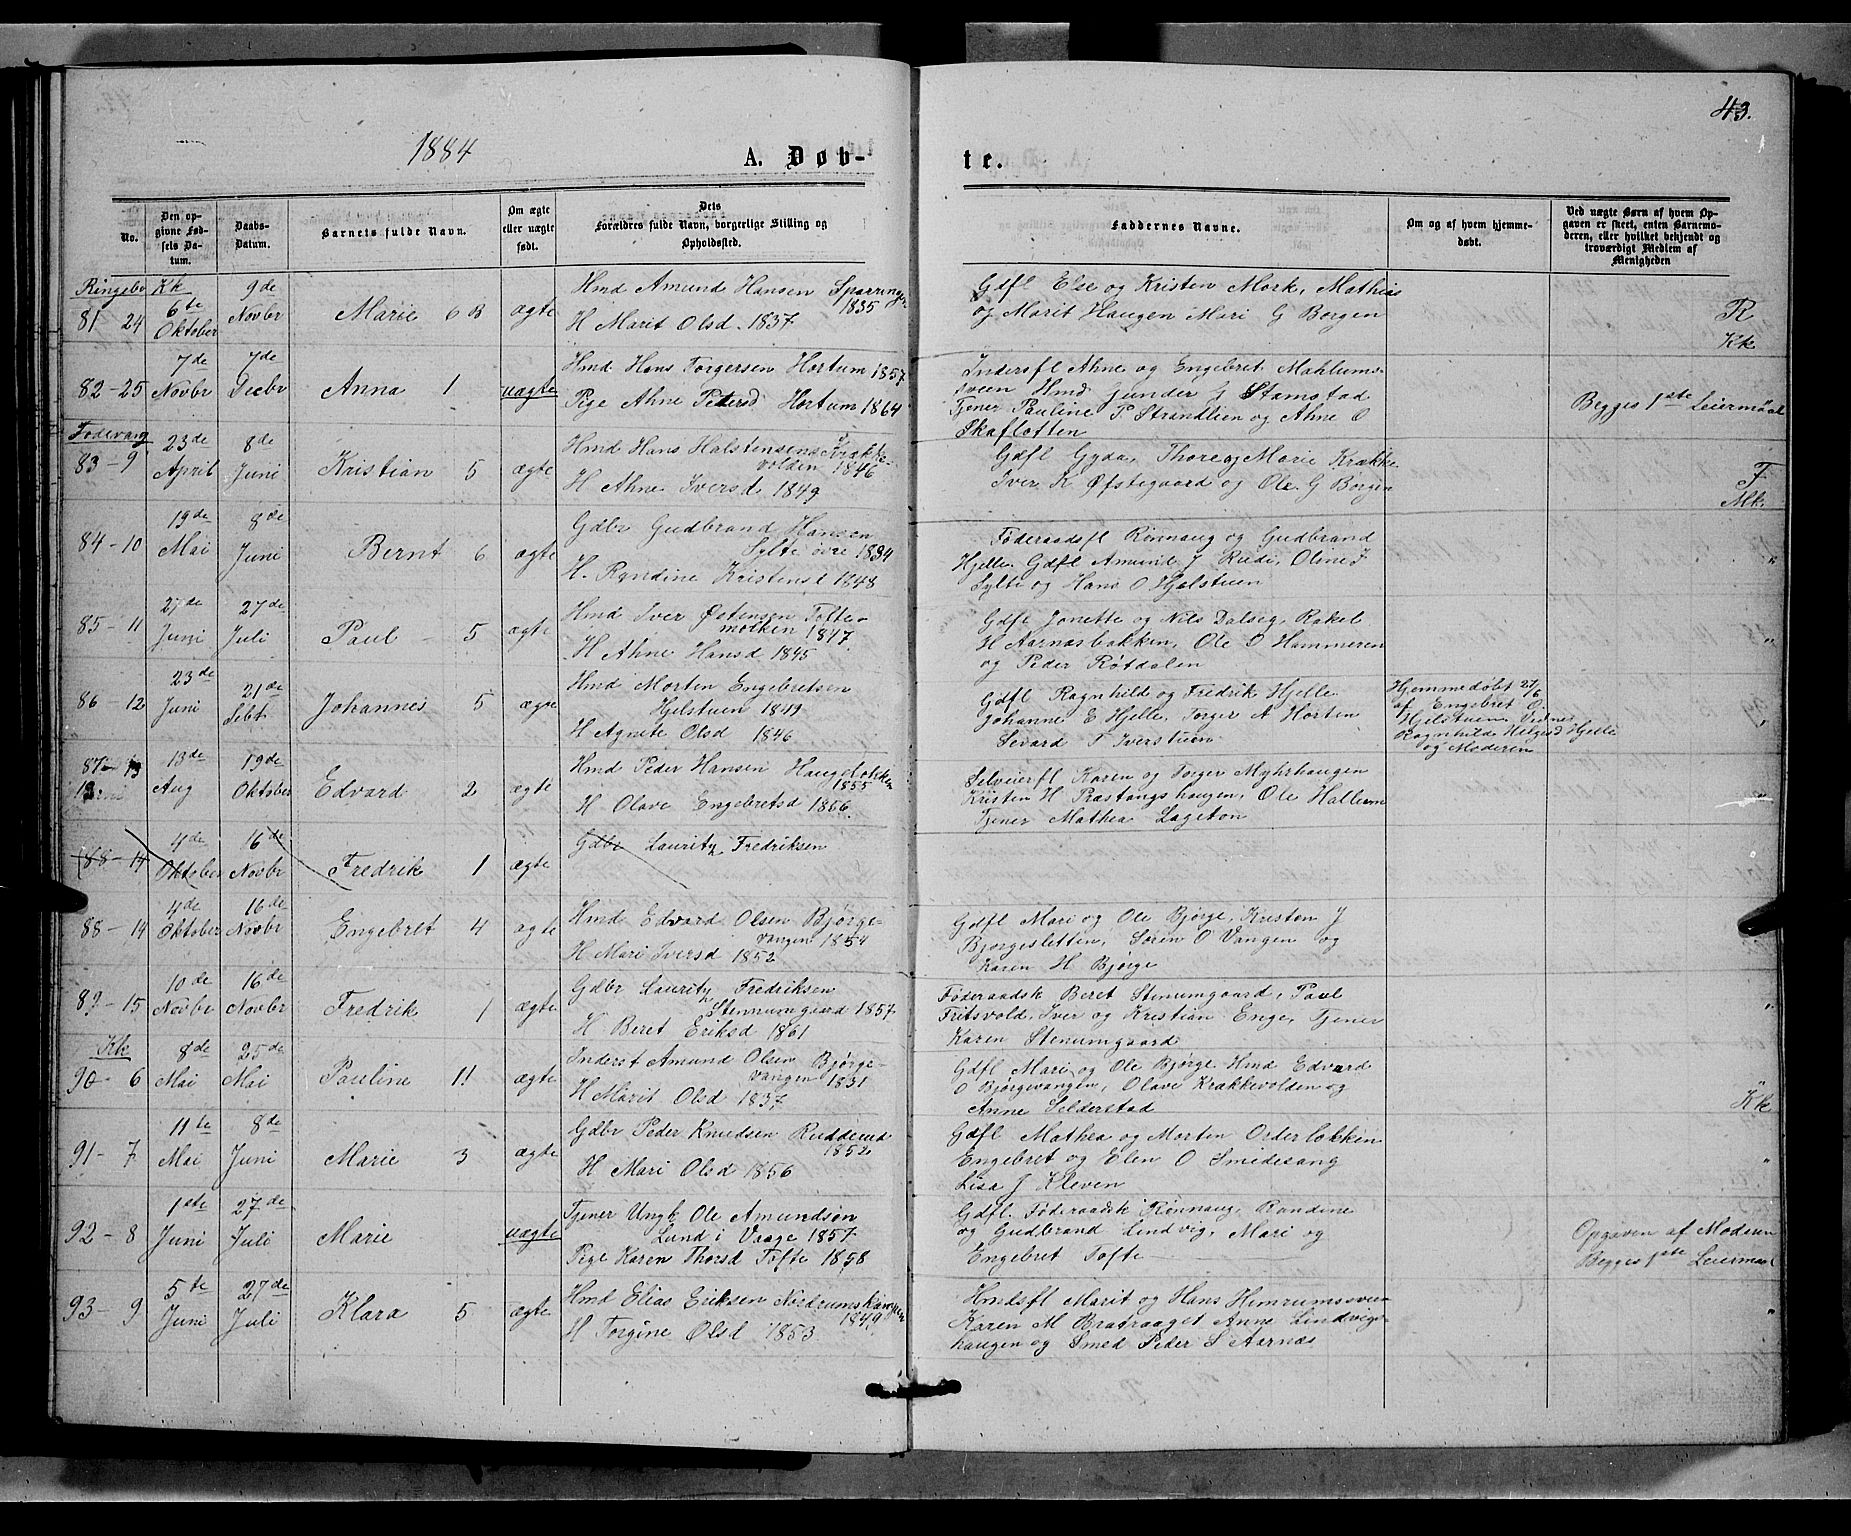 43.
1884
A. Døb-
te.
No.
Den op-
givne Fød-
sels Da-
tum.
Daabs-
Datum.
Barnets fulde Navn.
Om ægte
eller uægte
født.
Dets
Forældres fulde Navn, borgerlige Stilling og
Opholdssted.
Faddernes Navne.
Om og af hvem hjemme-
døbt.
Ved uægte Børn af hvem Op-
gaven er skeet, enten Barnemo-
deren, eller hvilket bekjendt og
troværdigt Medlem af
Menigheden
Ringebo Kk
81 24
6te
Oktober
9de
Novbr
Marie 6 B
ægte
Hmd Amund Hansen Sparringen
1835
H Marit Olsd. 1837
Gdfl Else og Kristen Mork, Mathias
og Marit Haugen Mari G Borgen
R
Kk
82-25
7de
Novbr
7de
Decbr
Anna 1
uægte
Hmd Hans Torgersen Hortum 1857
Pige Ahne Petersd Hortum 1864
Indersfl Ahne og Engebret Mahlums-
sveen Hmd Gunder G Stamstad
Tjener Pauline P. Strandlien og Ahne O
Skaflotten
Begges 1ste Leiermaal
Fodevang
83-9
23de
April
8de
Juni
Kristian 5
ægte
Hmd Hans Halstensen Krække-
volden 1846
H Ahne Iversd 1849
Gdfl Gyda, Thore og Marie Krække
Iver K Øfstegaard og Ole G Borgen
F
Mk
84-10
19de
Mai
8de
Juni
Bernt 6
ægte
Gdbr Gudbrand Hansen
Sylte øvre 1834
H. Ryndine Kristensd 1848
Føderaadsfl Rønnaug og Gudbrand
Hjelle. Gdfl Amund J Rudi, Oline J
Sylte og Hans O Hjelstuen
"
85-11
27de
Juni
27de
Juli
Paul 5
ægte
Hmd Iver Østensen Tofte-
moeken 1847
H Ahne Hansd 1845
Gdfl Jonette og Nils Dalseg, Rakel
H Aarnæsbakken, Ole O Hammeren
og Peder Røtdalen
"
86-12
23de
Juni
21de
Sebt
Johannes 5
ægte
Hmd Morten Engebretsen
Hjelstuen 1849
H Agnete Olsd 1846
Gdfl Ragnhild og Fredrik Hjelle
Johanne E Hjelle, Torger A Horten
Sevard T Iverstuen
Hjemmedøbt 27/6
af Engebret O.
Hjelstuen Vidner
Ragnhild Helgesd Hjelle
og Moderen
"
87-13
13de
Aug
19de
Oktober
Edvard 2
ægte
Hmd Peder Hansen Haugeløkken
1855
H Olave Engebretsd 1856.
Selveierfl Karen og Torger Myhrhaugen
Kristen H Præstangshaugen, Ole Hallum
Tjener Mathea Lageton
"
88-14
4de
Oktober
16de
Novbr
Fredrik 1
ægte
Gdbr Lauritz Fredriksen
88-14
4de
Oktober
16de
Novbr
Engebret 4
ægte
Hmd Edvard Olsen Bjørge-
vangen 1854
H Mari Iversd 1852
Gdfl Mari og Ole Bjørge, Kristen J
Bjørgesletten, Søren O Vangen og
Karen H Bjørge
89-15
10de
Novbr
16de
Novbr
Fredrik 1
ægte
Gdbr Lauritz Fredriksen
Stenumgaard 1857
H Beret Eriksd 1861
Føderaadsk Beret Stenumgaard, Paul
Fritsvold, Iver og Kristian Enge, Tjener
Karen Stenumgaard
"
Kk
90-6
8de
Mai
25de
Mai
Pauline 11
ægte
Inderst Amund Olsen Bjørge-
vangen 1831
H Marit Olsd 1837
Gdfl Mari og Ole Bjørge Hmd Edvard
O Bjørgevangen, Olave Krækkevolden og
Anne Selderstad
"
Kk
91-7
11te
Mai
8de
Juni
Marie 3
ægte
Gdbr Peder Knudsen Ruddend
1852
H Mari Olsd 1856
Gdfl Mathea og Morten Orderløkken
Engebret og Elen O Smidesang
Lisa J Kleven
"
92-8
1ste
Juni
27de
Juli
Marie
uægte
Tjener Ungk Ole Amundsøn
Lund i Vaage 1857
Pige Karen Thorsd Tofte 1858
Gdfl. Føderaadsk Rønnaug, Randine
og Gudbrand Lindvig, Mari og
Engebret Tofte
Opgaven af Moderen
Begges 1ste Leiermaal
93-9
5te
Juni
27de
Juli
Klara 5
ægte
Hmd Elias Eriksen Nordrumskampen
1849
H Torgine Olsd 1853
Hmdsfl Marit og Hans Himrumssveen
Karen M Bratraaget Anne Lindvigs-
haugen og Smed Peder S Aarnæs
"